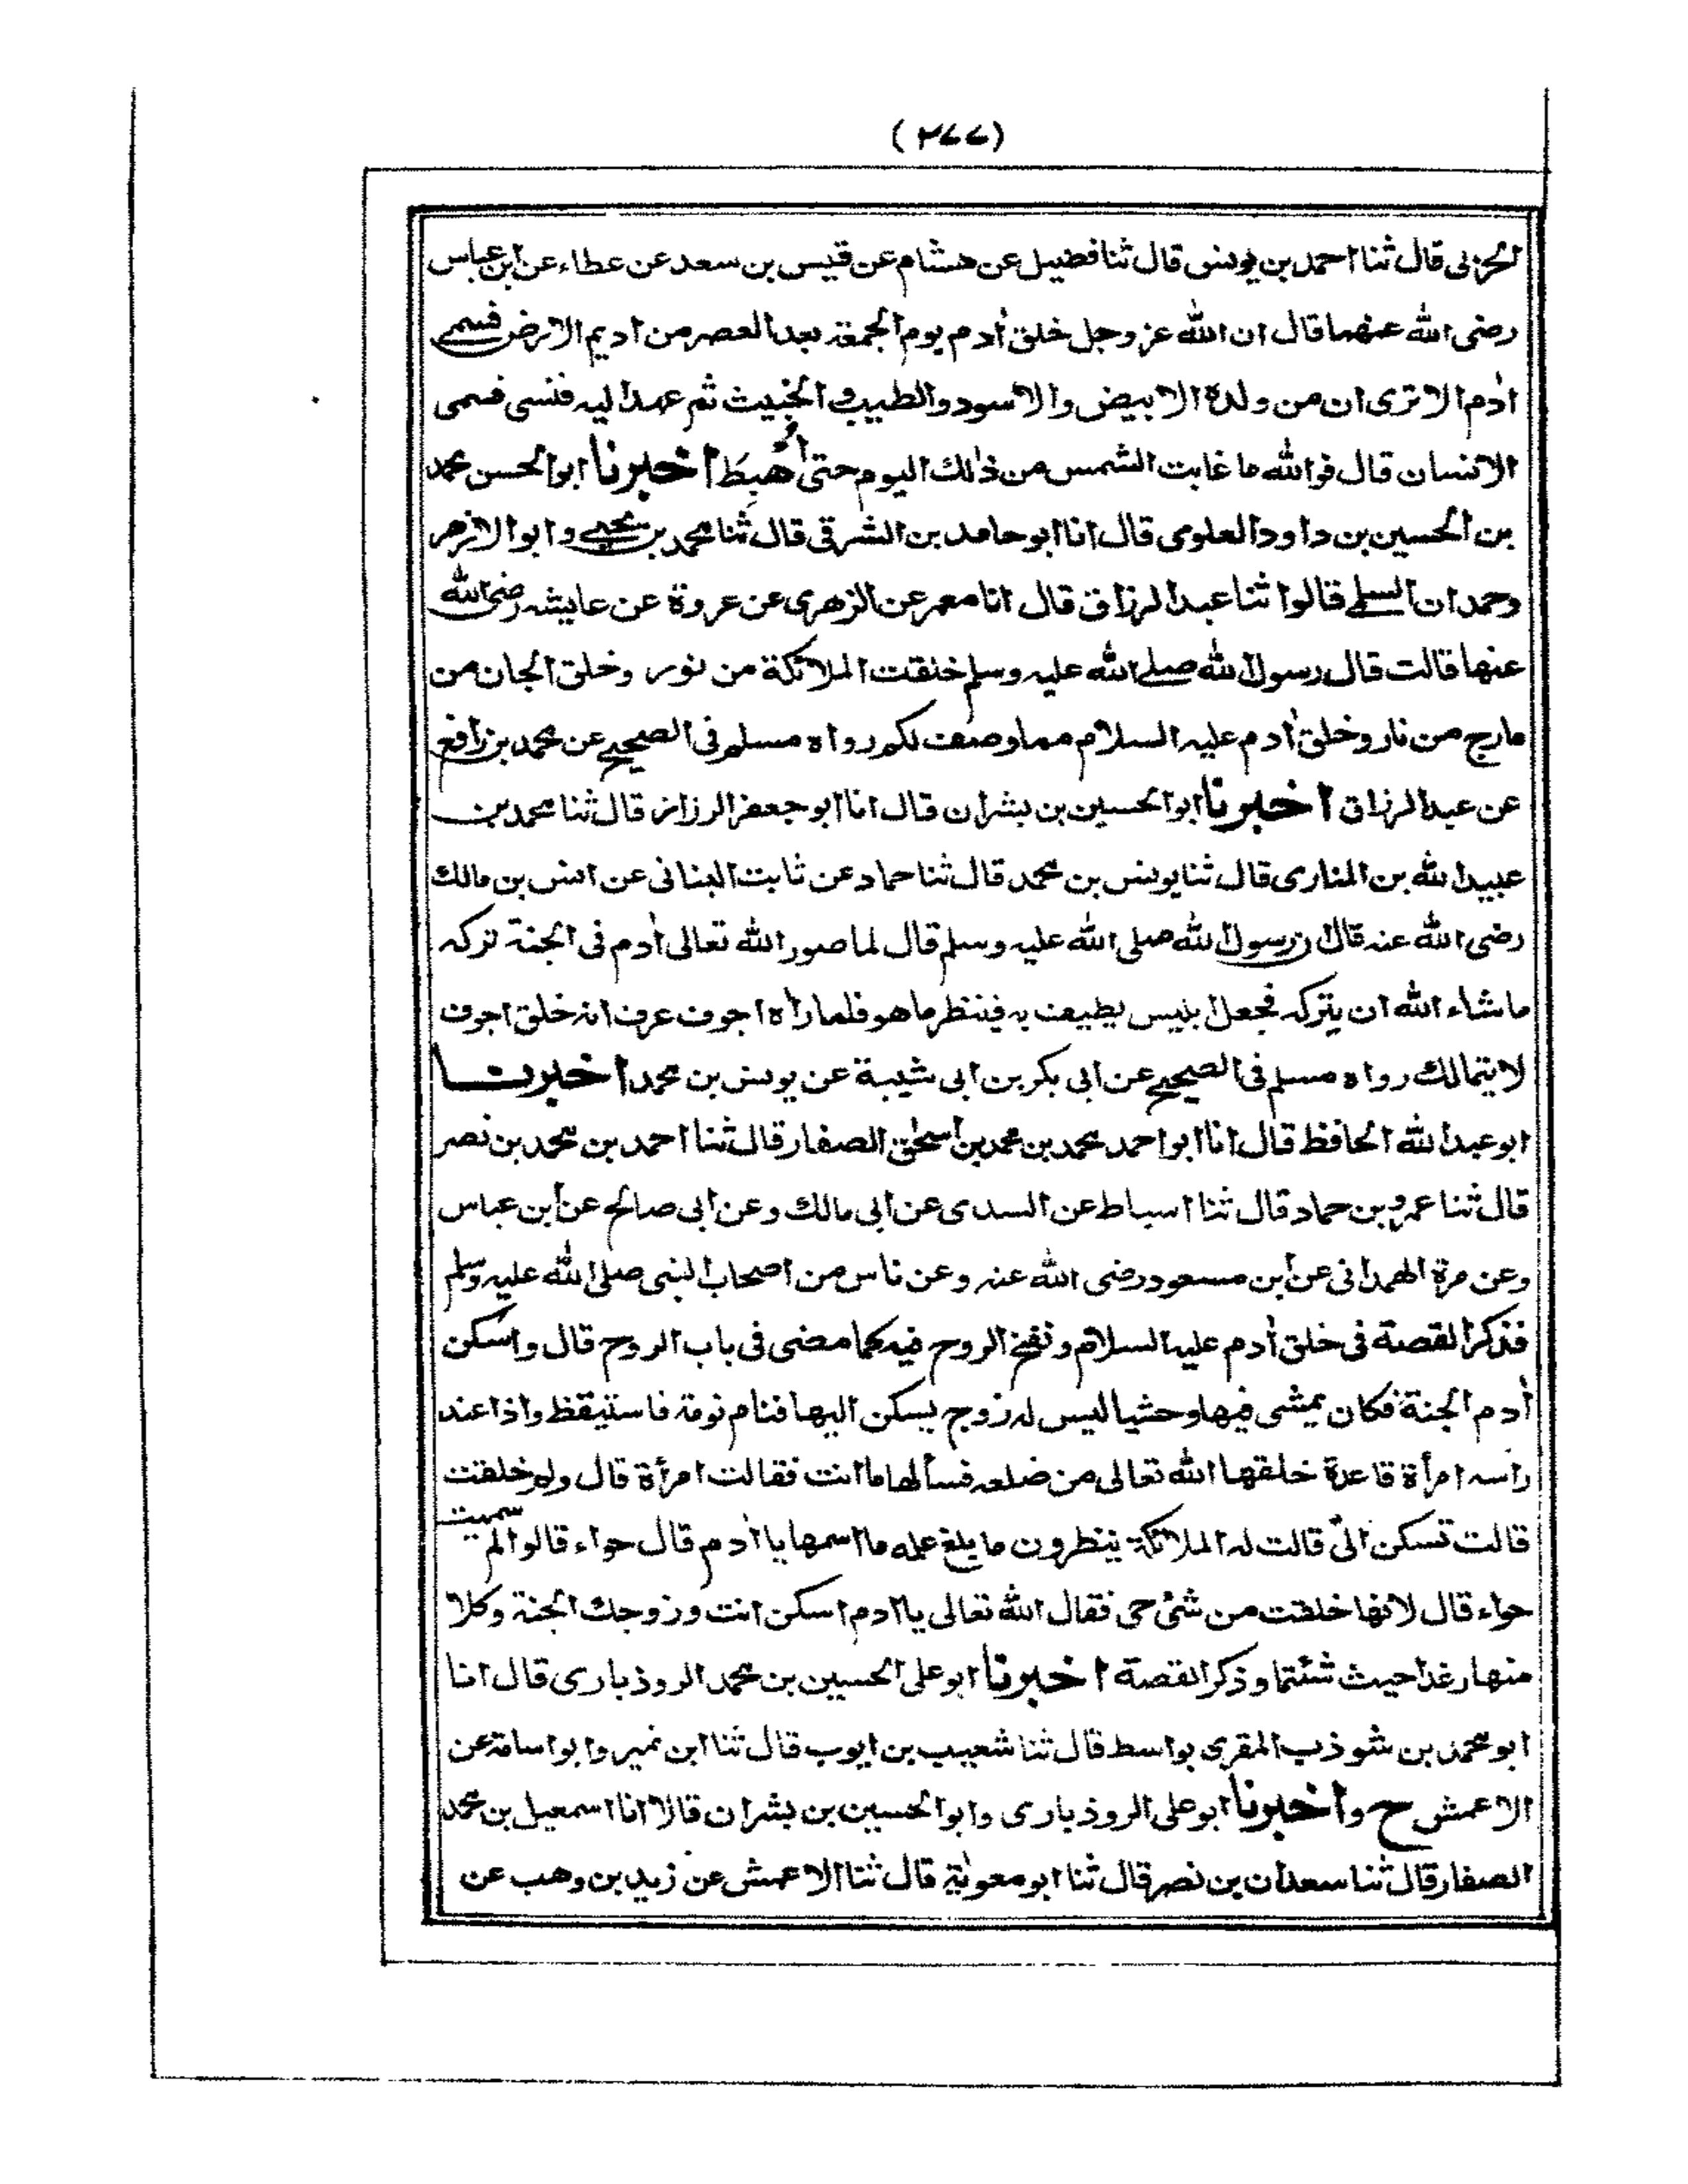 (۲۷۷)
الحربی قال ثنا احمد بن یونس قال ثنا فضیل عن هشام عن قیس بن سعد عن عطاء عن ابن عباس
رضی الله عنهما قال ان الله عز وجل خلق اٰدم یوم الجمعة بعد العصر من ادیم الارض فسمی
اٰدم الا تری ان من ولده الابیض والاسود والطیب والخبیث ثم عهد الیه فنسی فسمی
الانسان قال فوالله ما غابت الشمس من ذٰلك الیوم حتی اُهبِطَ اخبرنا ابو الحسن محمد
بن الحسین بن داود العلوی قال انا ابو حامد بن الشرقی قال ثنا محمد بن یحیی وابو الازهر
وحمدان السلمی قالوا ثنا عبد الرزاق قال انا معمر عن الزهری عن عروة عن عایشه رضی الله
عنها قالت قال رسول الله صلی الله علیه وسلم خلقت الملائکة من نور وخلق الجان من
مارج من نار وخلق اٰدم علیه السلام مما وصف لکم رواه مسلم فی الصحیح عن محمد بن رافع
عن عبد الرزاق اخبرنا ابو الحسین بن بشران قال انا ابو جعفر الرزاز قال ثنا محمد بن
عبید الله بن المناری قال ثنا یونس بن محمد قال ثنا حماد عن ثابت البنانی عن انس بن مالك
رضی الله عنه قال ان رسول الله صلی الله علیه وسلم قال لما صور الله تعالی اٰدم فی الجنة ترکه
ماشاء الله ان یترکه فجعل ابلیس یطیف به فینظر ما هو فلما رأه اجوف عرف انه خلق اجوف
لا یتمالك رواه مسلم فی الصحیح عن ابی بکر بن ابی شیبة عن یونس بن محمد اخبرنا
ابو عبد الله الحافظ قال انا ابو احمد محمد بن محمد بن اسحٰق الصفار قال ثنا احمد بن محمد بن نصر
قال ثنا عمرو بن حماد قال ثنا اسباط عن السدی عن ابی مالك وعن ابی صالح عن ابن عباس
وعن مرة الهمدانی عن ابن مسعود رضی الله عنه وعن ناس من اصحاب النبی صلی الله علیه وسلم
فذکر القصة فی خلق اٰدم علیه السلام ونفخ الروح فیه کما مضی فی باب الروح قال واسکن
اٰدم الجنة فکان یمشی فیها وحشیا لیس له زوج یسکن الیها فنام نومة فاستیقظ واذا عند
راسه امرأة قاعدة خلقها الله تعالی من ضلعه فسألها ما انت فقالت امرأة قال ولم خلقت
قالت تسکن الیّ قالت له الملائکة ینظرون ما یلغ علمه ما اسمها یا اٰدم قال حواء قالوا لم سمیت
حواء قال لانها خلقت من شئ حی فقال الله تعالی یا ادم اسکن انت وزوجك الجنة وکلا
منها رغدا حیث شئتما وذکر القصة اخبرنا ابو علی الحسین بن محمد الروذباری قال انا
ابو محمد بن شوذب المقری بواسط قال ثنا شعیب بن ایوب قال ثنا ابن نمیر وابو اسامة عن
الاعمش ح واخبرنا ابو علی الروذباری وابو الحسین بن بشران قالا انا اسمعیل بن محمد
الصفار قال ثنا سعدان بن نصر قال ثنا ابو معویٰة قال ثنا الاعمش عن زید بن وهب عن